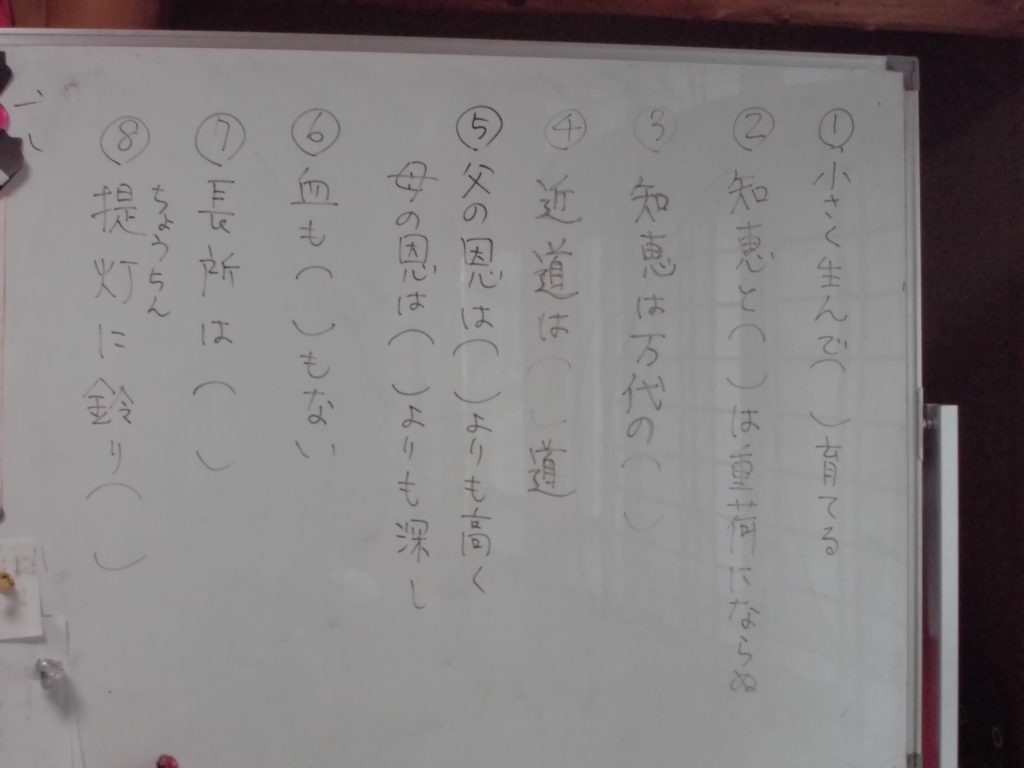 ① 小さく生んで( )育てる
② 知恵と( )は重荷にならぬ
③ 知恵は万代の( )
④ 近道は( )道
⑤ 父の恩は( )よりも高く
母の恩は( )よりも深し
⑥ 血も( )もない
⑦ 長所は( )
ちょうちん
⑧ 提灯に鈴り( )